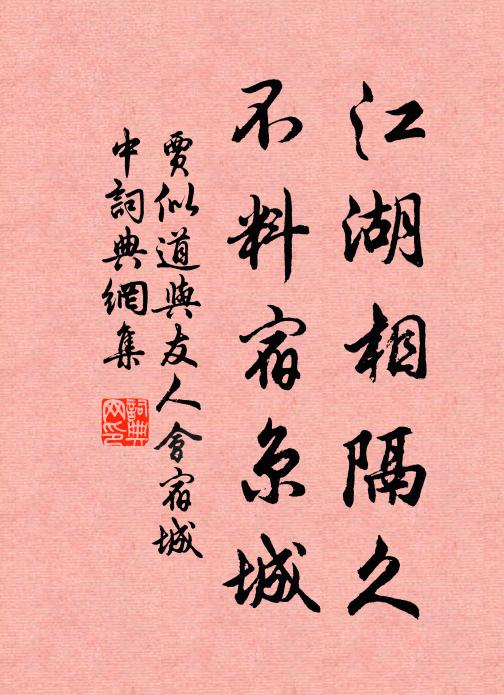 江湖相隔久
不料宿京城
賈似道與友人會宿城
中詞典網集
詞典
网印